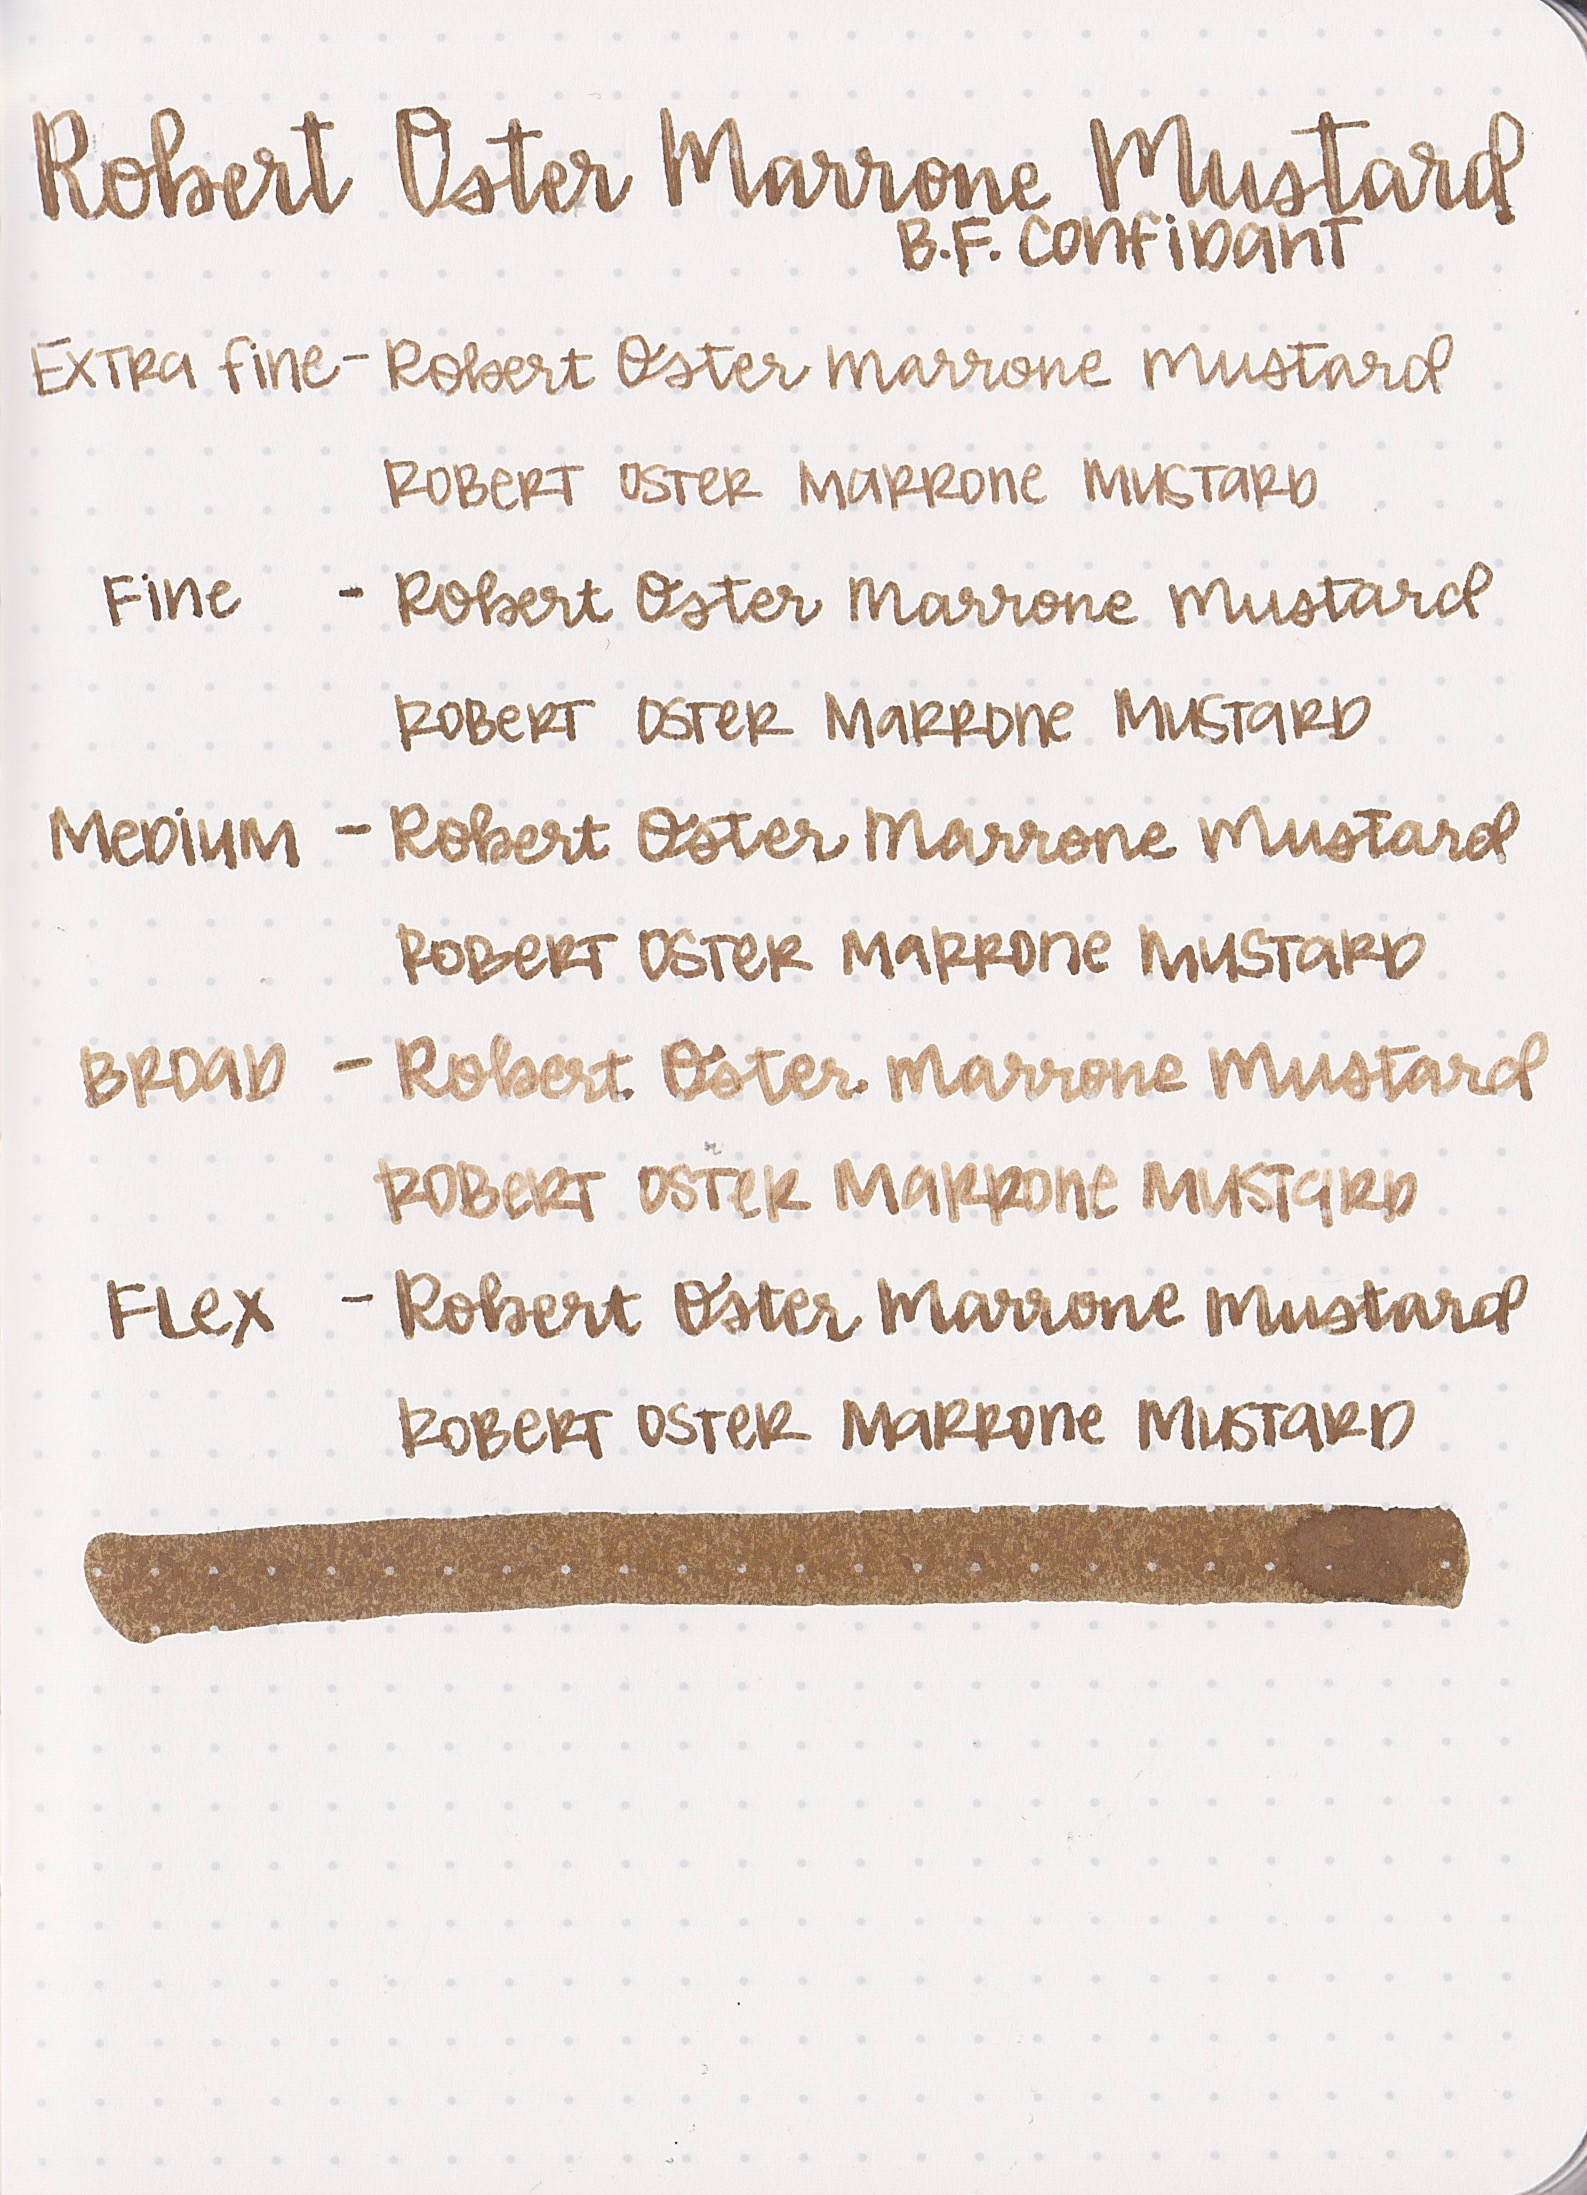 Robert Oster Marrone Mustard
B.F. Confidant
Extra fine - Robert Oster Marrone Mustard
Robert Oster Marrone Mustard
Fine - Robert Oster Marrone Mustard
Robert Oster Marrone Mustard
Medium - Robert Oster Marrone Mustard
Robert Oster Marrone Mustard
Broad - Robert Oster Marrone Mustard
Robert Oster Marrone Mustard
Flex - Robert Oster Marrone Mustard
Robert Oster Marrone Mustard